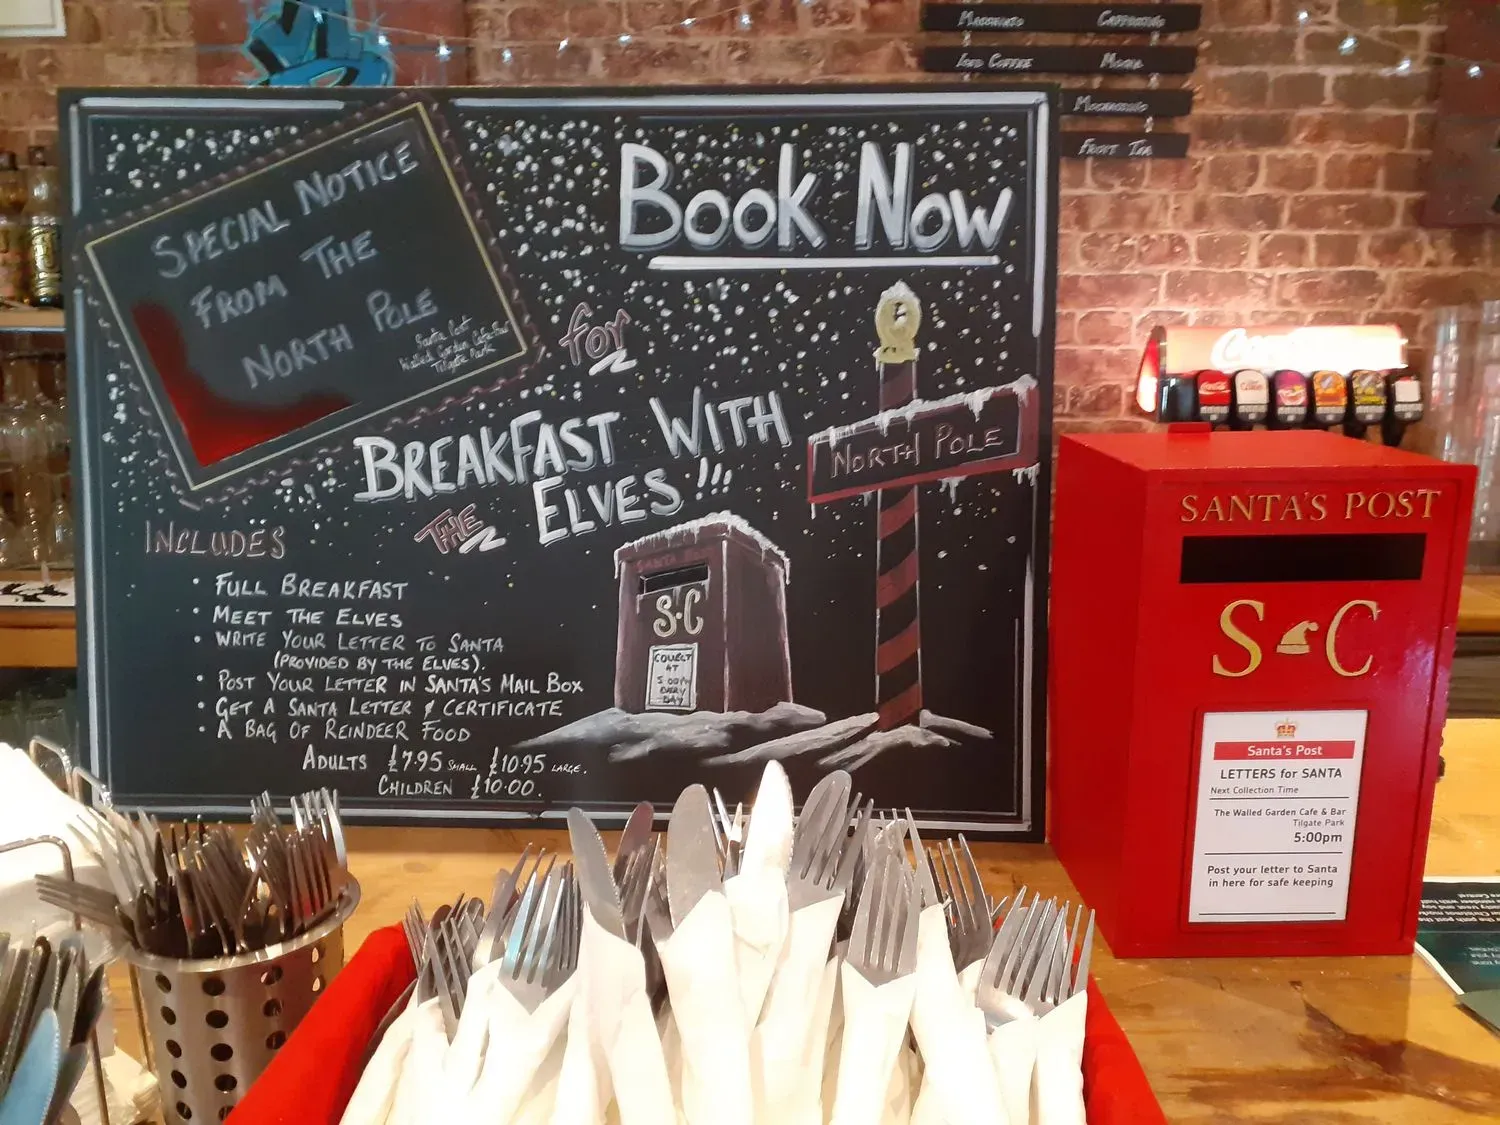 SPECIAL NOTICE
FROM THE
NORTH POLE
Santa Post
Walled Garden Cafe/Bar
Tilgate Park
BOOK NOW
for
BREAKFAST WITH
THE ELVES!!!
INCLUDES
• FULL BREAKFAST
• MEET THE ELVES
• WRITE YOUR LETTER TO SANTA
(PROVIDED BY THE ELVES).
• POST YOUR LETTER IN SANTA'S MAIL BOX
• GET A SANTA LETTER & CERTIFICATE
• A BAG OF REINDEER FOOD
ADULTS £7.95 SMALL £10.95 LARGE.
CHILDREN £10.00.
NORTH POLE
S·C
COLLECT
AT
5:00PM
EVERY
DAY
CAPPUCCINO
ICED COFFEE
MOCHA
FRUIT TEA
SANTA'S POST
S C
Santa's Post
LETTERS for SANTA
Next Collection Time
The Walled Garden Cafe & Bar
Tilgate Park
5:00pm
Post your letter to Santa
in here for safe keeping